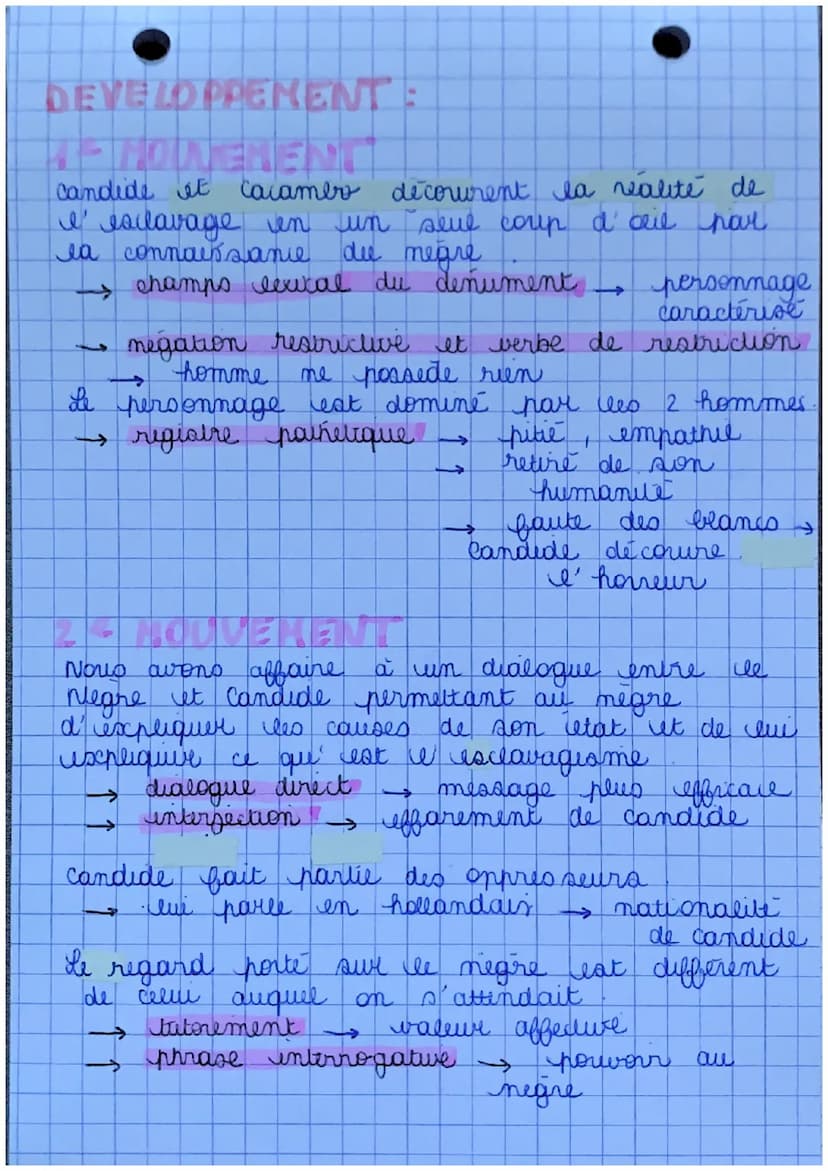 DEVELOPPEMENT :
1e MOUVEMENT
Candide et Cacambo découvrent la réalité de
l'esclavage en un seul coup d'œil par
la connaissance du nègre.
→ champs lexical du dénument → personnage
caractérisé
→ négation restrictive et verbe de restriction
→ homme ne possède rien
Le personnage est dominé par les 2 hommes.
→ registre pathétique → pitié, empathie
→ retiré de son
humanité
→ faute des blancs →
Candide découvre
l'horreur
2e MOUVEMENT
Nous avons affaire à un dialogue entre le
Nègre et Candide permettant au nègre
d'expliquer les causes de son état et de lui
expliquer ce qu'est l'esclavagisme
→ dialogue direct → message plus efficace
→ interjection → effarement de candide
Candide fait partie des oppresseurs.
→ lui parle en hollandais → nationalité
de candide
Le regard porté sur le nègre est différent
de celui auquel on s'attendait.
→ tutoiement → valeur affective
→ phrase interrogative → pouvoir au
nègre